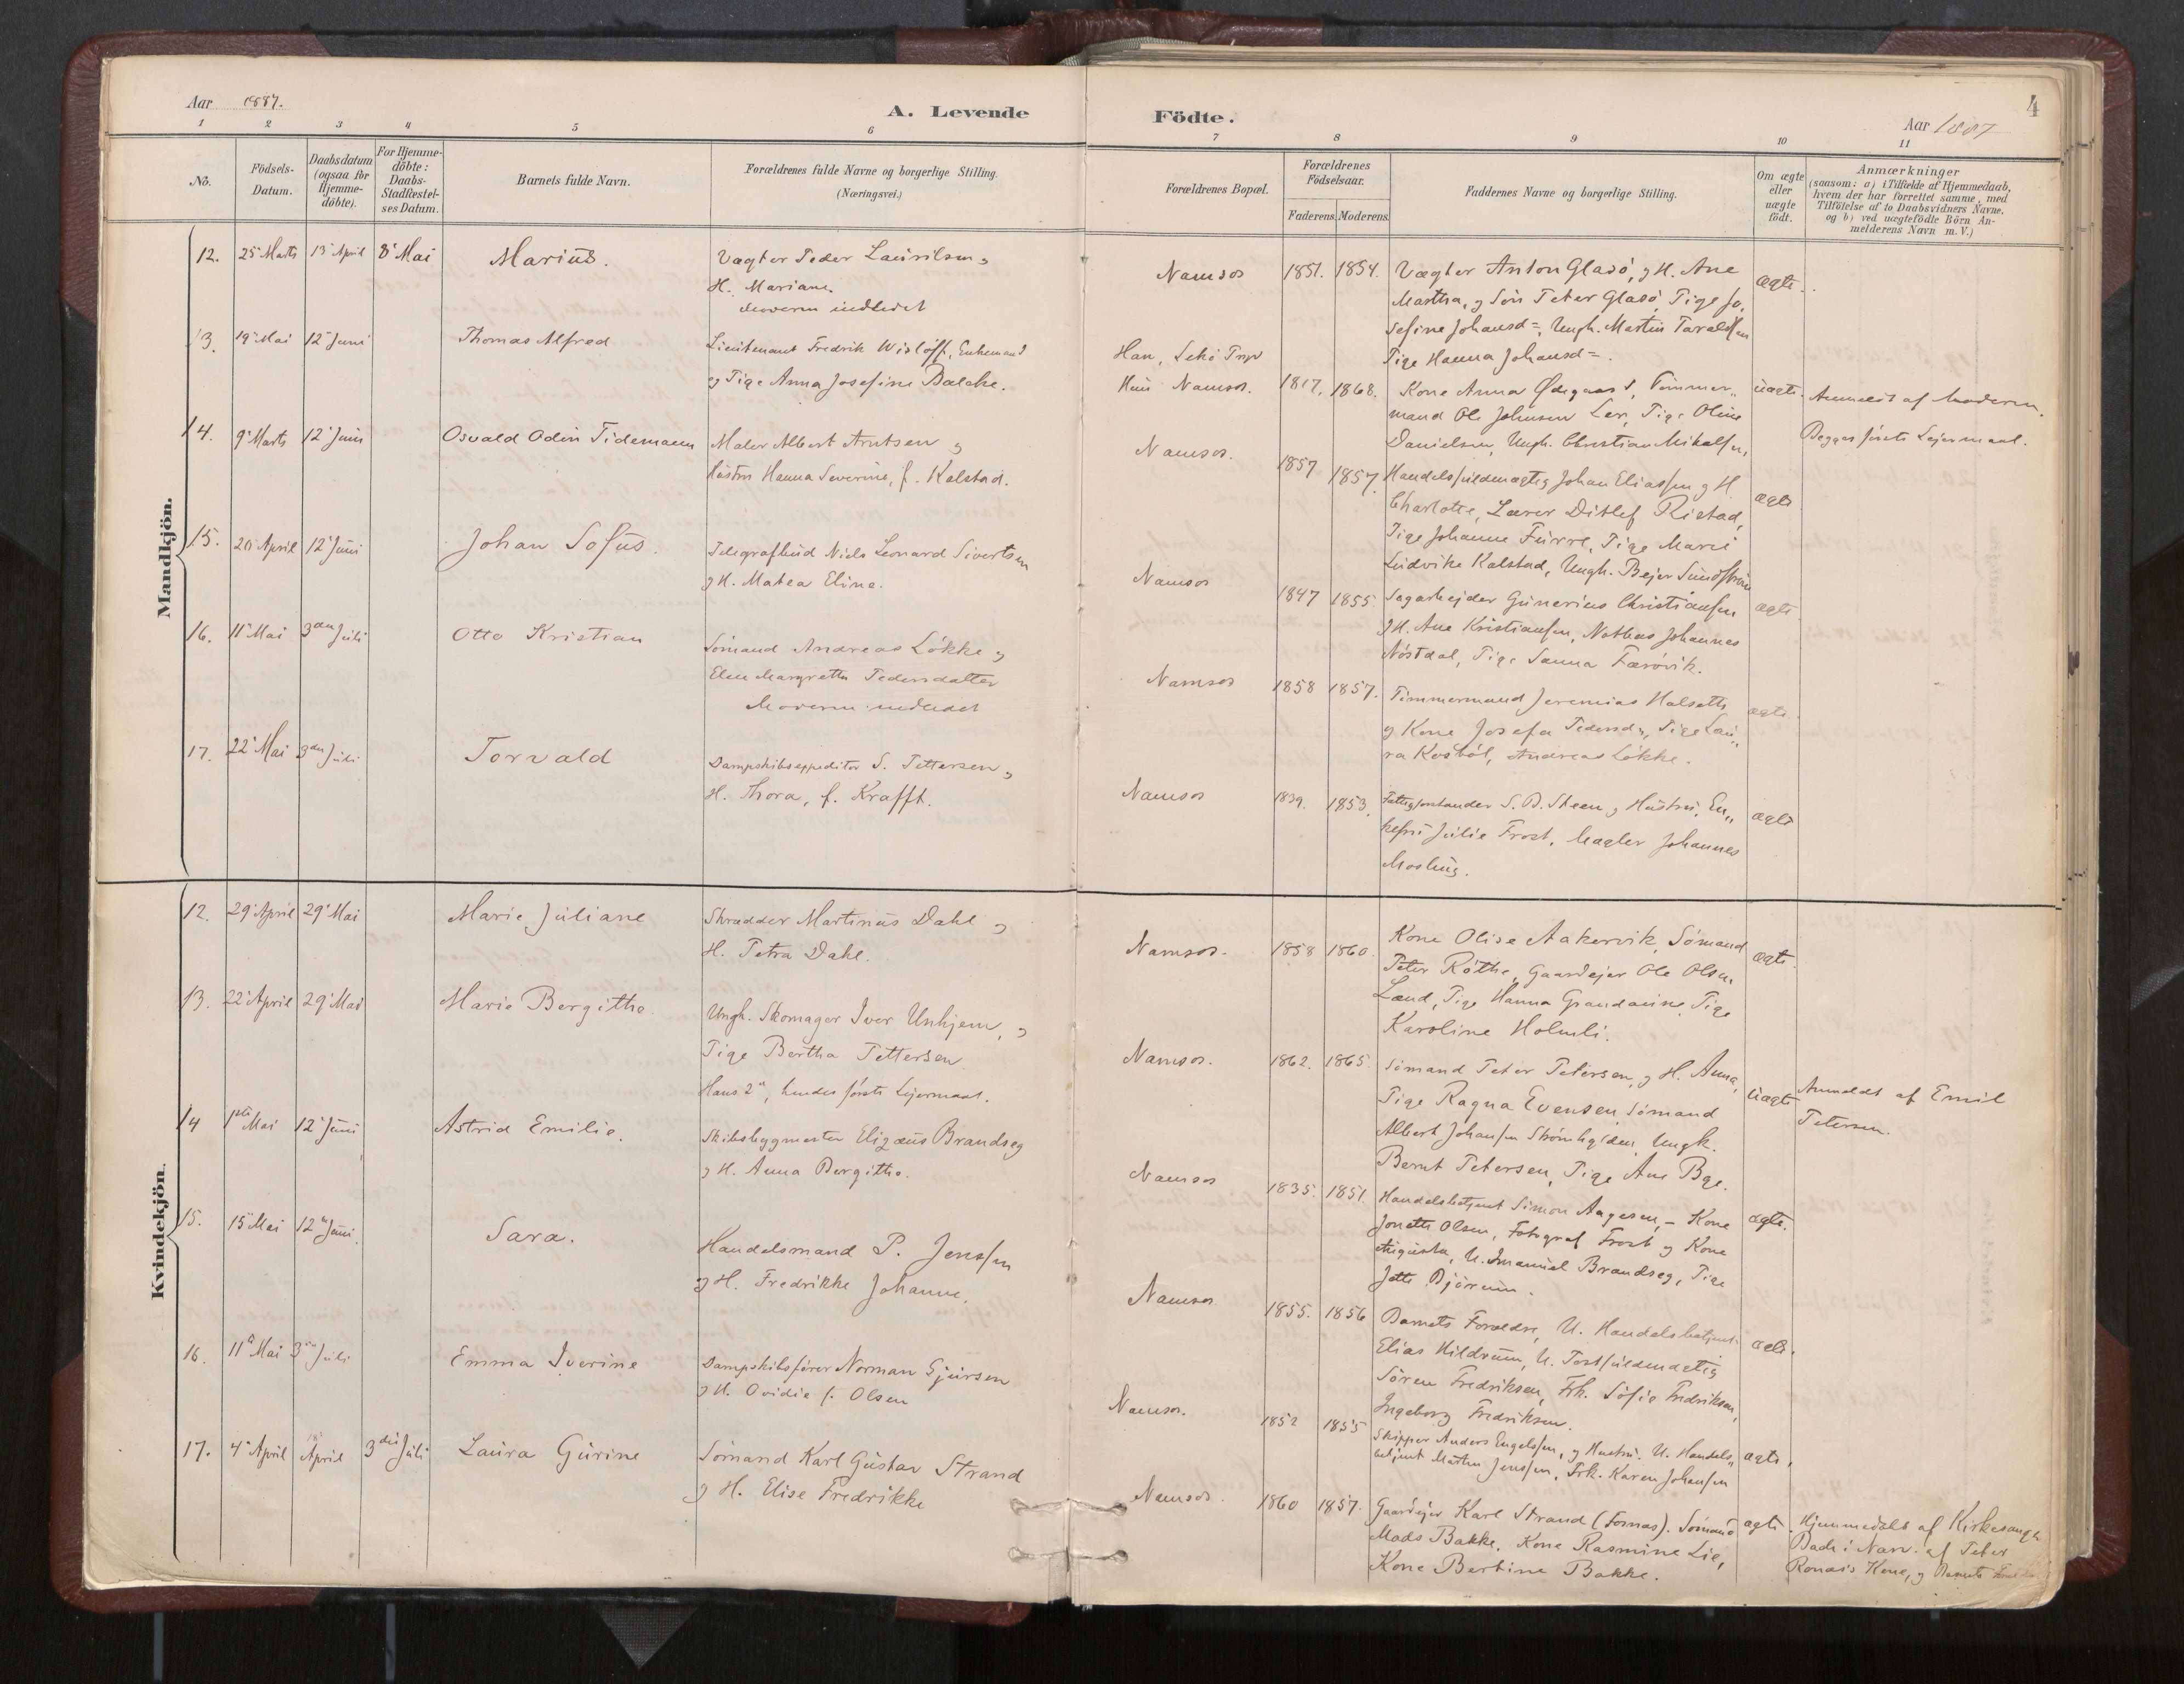 Aar 1887.
A. Levende
Födte.
Aar 1887
4
1 2 3 4 5 6 7 8 9 10 11
No.
Födsels-
Datum.
Daabsdatum
(ogsaa for
Hjemme-
döbte).
For Hjemme-
döbte:
Daabs-
Stadfæstel-
ses Datum.
Barnets fulde Navn.
Forældrenes fulde Navne og borgerlige Stilling.
(Næringsvei.)
Forældrenes Bopæl.
Forældrenes
Födselsaar.
Faderens. Moderens.
Faddernes Navne og borgerlige Stilling.
Om ægte
eller
uægte
födt.
Anmærkninger
(saasom: a) i Tilfælde af Hjemmedaab,
hvem der har forrettet samme, med
Tilföielse af to Daabsvidners Navne,
og b) ved uægtefödte Börn An-
melderens Navn m. V.)
Mandkjön.
12. 25 Marts 13 April 8 Mai Marius.
Vægter Peder Lauritsen og
H. Mariane.
Moderen indledet
Namsos 1851. 1854.
Vægter Anton Glasö, og H. Ane
Martha, og Sön Peter Glasö, Pige Jo,
sefine Johansd=, Ungk. Martin Taraldsen
Pige Hanna Johansd=.
ægte.
13. 19 Mai 12 Juni Thomas Alfred
Lieutenant Fredrik Wislöff, Enkemand
og Pige Anna Josefine Balcke.
Han, Lekö
Hun Namsos. 1817, 1868.
Kone Anna Ødegaard, Tömmer„
mand Ole Johnsen Ler, Pige Oline
Danielsen, Ungk. Christian Mikalsen,
uægte.
Anmeldt af Moderen.
Begges förste Lejermaal.
14. 9 Marts 12 Juni Osvald Odin Tidemann
Maler Albert Arntsen og
Hustru Hanna Severine, f. Kalstad.
Namsos. 1857 1857.
Handelsfuldmægtig Johan Eliassen og H
Charlotte, Lærer Ditlef Ristad,
Pige Johanne Furre, Pige Marie
Ludvike Kalstad, Ungk. Bejer Sundström
ægte
15. 20 April 12 Juni Johan Sofus.
Telegrafbud Niels Leonard Sivertsen
og H. Matea Eline.
Namsos 1847 1855
Sagarbejder Gunerius Christiansen
og H. Ane Kristiansen, Notbas Johannes
Nöstdal, Pige Sanna Færövik.
ægte
16. 11 Mai 3die Juli Otto Kristian
Sömand Andreas Lökke og
Elen Margrethe Pedersdatter
Moderen indledet
Namsos 1858 1857.
Tömmermand Jeremias Halseth
og Kone Josefa Pedersd., Pige Lau„
ra Kosböl, Andreas Lökke.
ægte.
17. 22 Mai 3die Juli Torvald
Dampskibsexpeditör S. Pettersen og
H. Thora, f. Krafft.
Namsos 1839. 1853.
Fattigforstander S. B. Steen og Hustru, En„
kefru Julie Frost, Mægler Johannes
Mosling.
ægte
Kvindekjön.
12. 29 April 29 Mai Marie Juliane
Skrædder Martinus Dahl og
H. Petra Dahl.
Namsos. 1858 1860.
Kone Olise Aakervik, Sömand
Peter Röthe, Gaardejer Ole Olsen
Land, Pige Hanna Grandauine, Pige
Karoline Holmli.
ægte.
13. 22 April 29 Mai Marie Bergithe.
Ungk. Skomager Iver Unhjem, og
Pige Bertha Pettersen
Hans 2d, hendes förste Lejermaal.
Namsos. 1862. 1865.
Sömand Peter Petersen, og H. Anna,
Pige Ragna Evensen, Sömand
Albert Johansen Strömhylden, Ungk.
Bernt Petersen, Pige Ane Bge.
uægte
Anmeldt af Emil
Petersen.
14 1ste Mai 12 Juni Astrid Emilie.
Skibsbygmester Elizæus Brandseg
og H. Anna Bergithe.
Namsos 1835. 1851.
Handelsbetjent Simon Aagesen, - Kone
Jonette Olsen, Fotograf Frost og Kone
Augusta, U. Imanuel Brandseg, Pige
Jette Björum.
ægte.
15. 15 Mai 12 Juni. Sara.
Handelsmand P. Jenssen
og H. Fredrikke Johanne.
Namsos 1855. 1856
Barnets Forældre, U. Handelsbetjent
Elias Hildrum, U. Postfuldmægtig
Sören Fredriksen, Frk. Sofie Fredriksen,
Ingeborg Fredriksen.
ægte.
16. 11 Mai 3die Juli Emma Iverine
Dampskibsförer Norman Gjursen
og H. Ovidie f. Olsen
Namsos. 1852 1855
Skipper Anders Engelsen, og Hustru. U. Handels„
betjent Martin Jenssen, Frk. Karen Johansen
ægte,
17. 4 April 18 April 3die Juli Laura Gurine
Sömand Karl Gustav Strand
og H. Elise Fredrikke
Namsos. 1860 1857.
Gaardejer Karl Strand (Fosnas). Sömand
Mads Bakke, Kone Rasmine Lie,
Kone Bertine Bakke.
ægte.
Hjemmedöbt af Kirkesanger
Bade i Nærv. af Peter
Kone, og Barnets